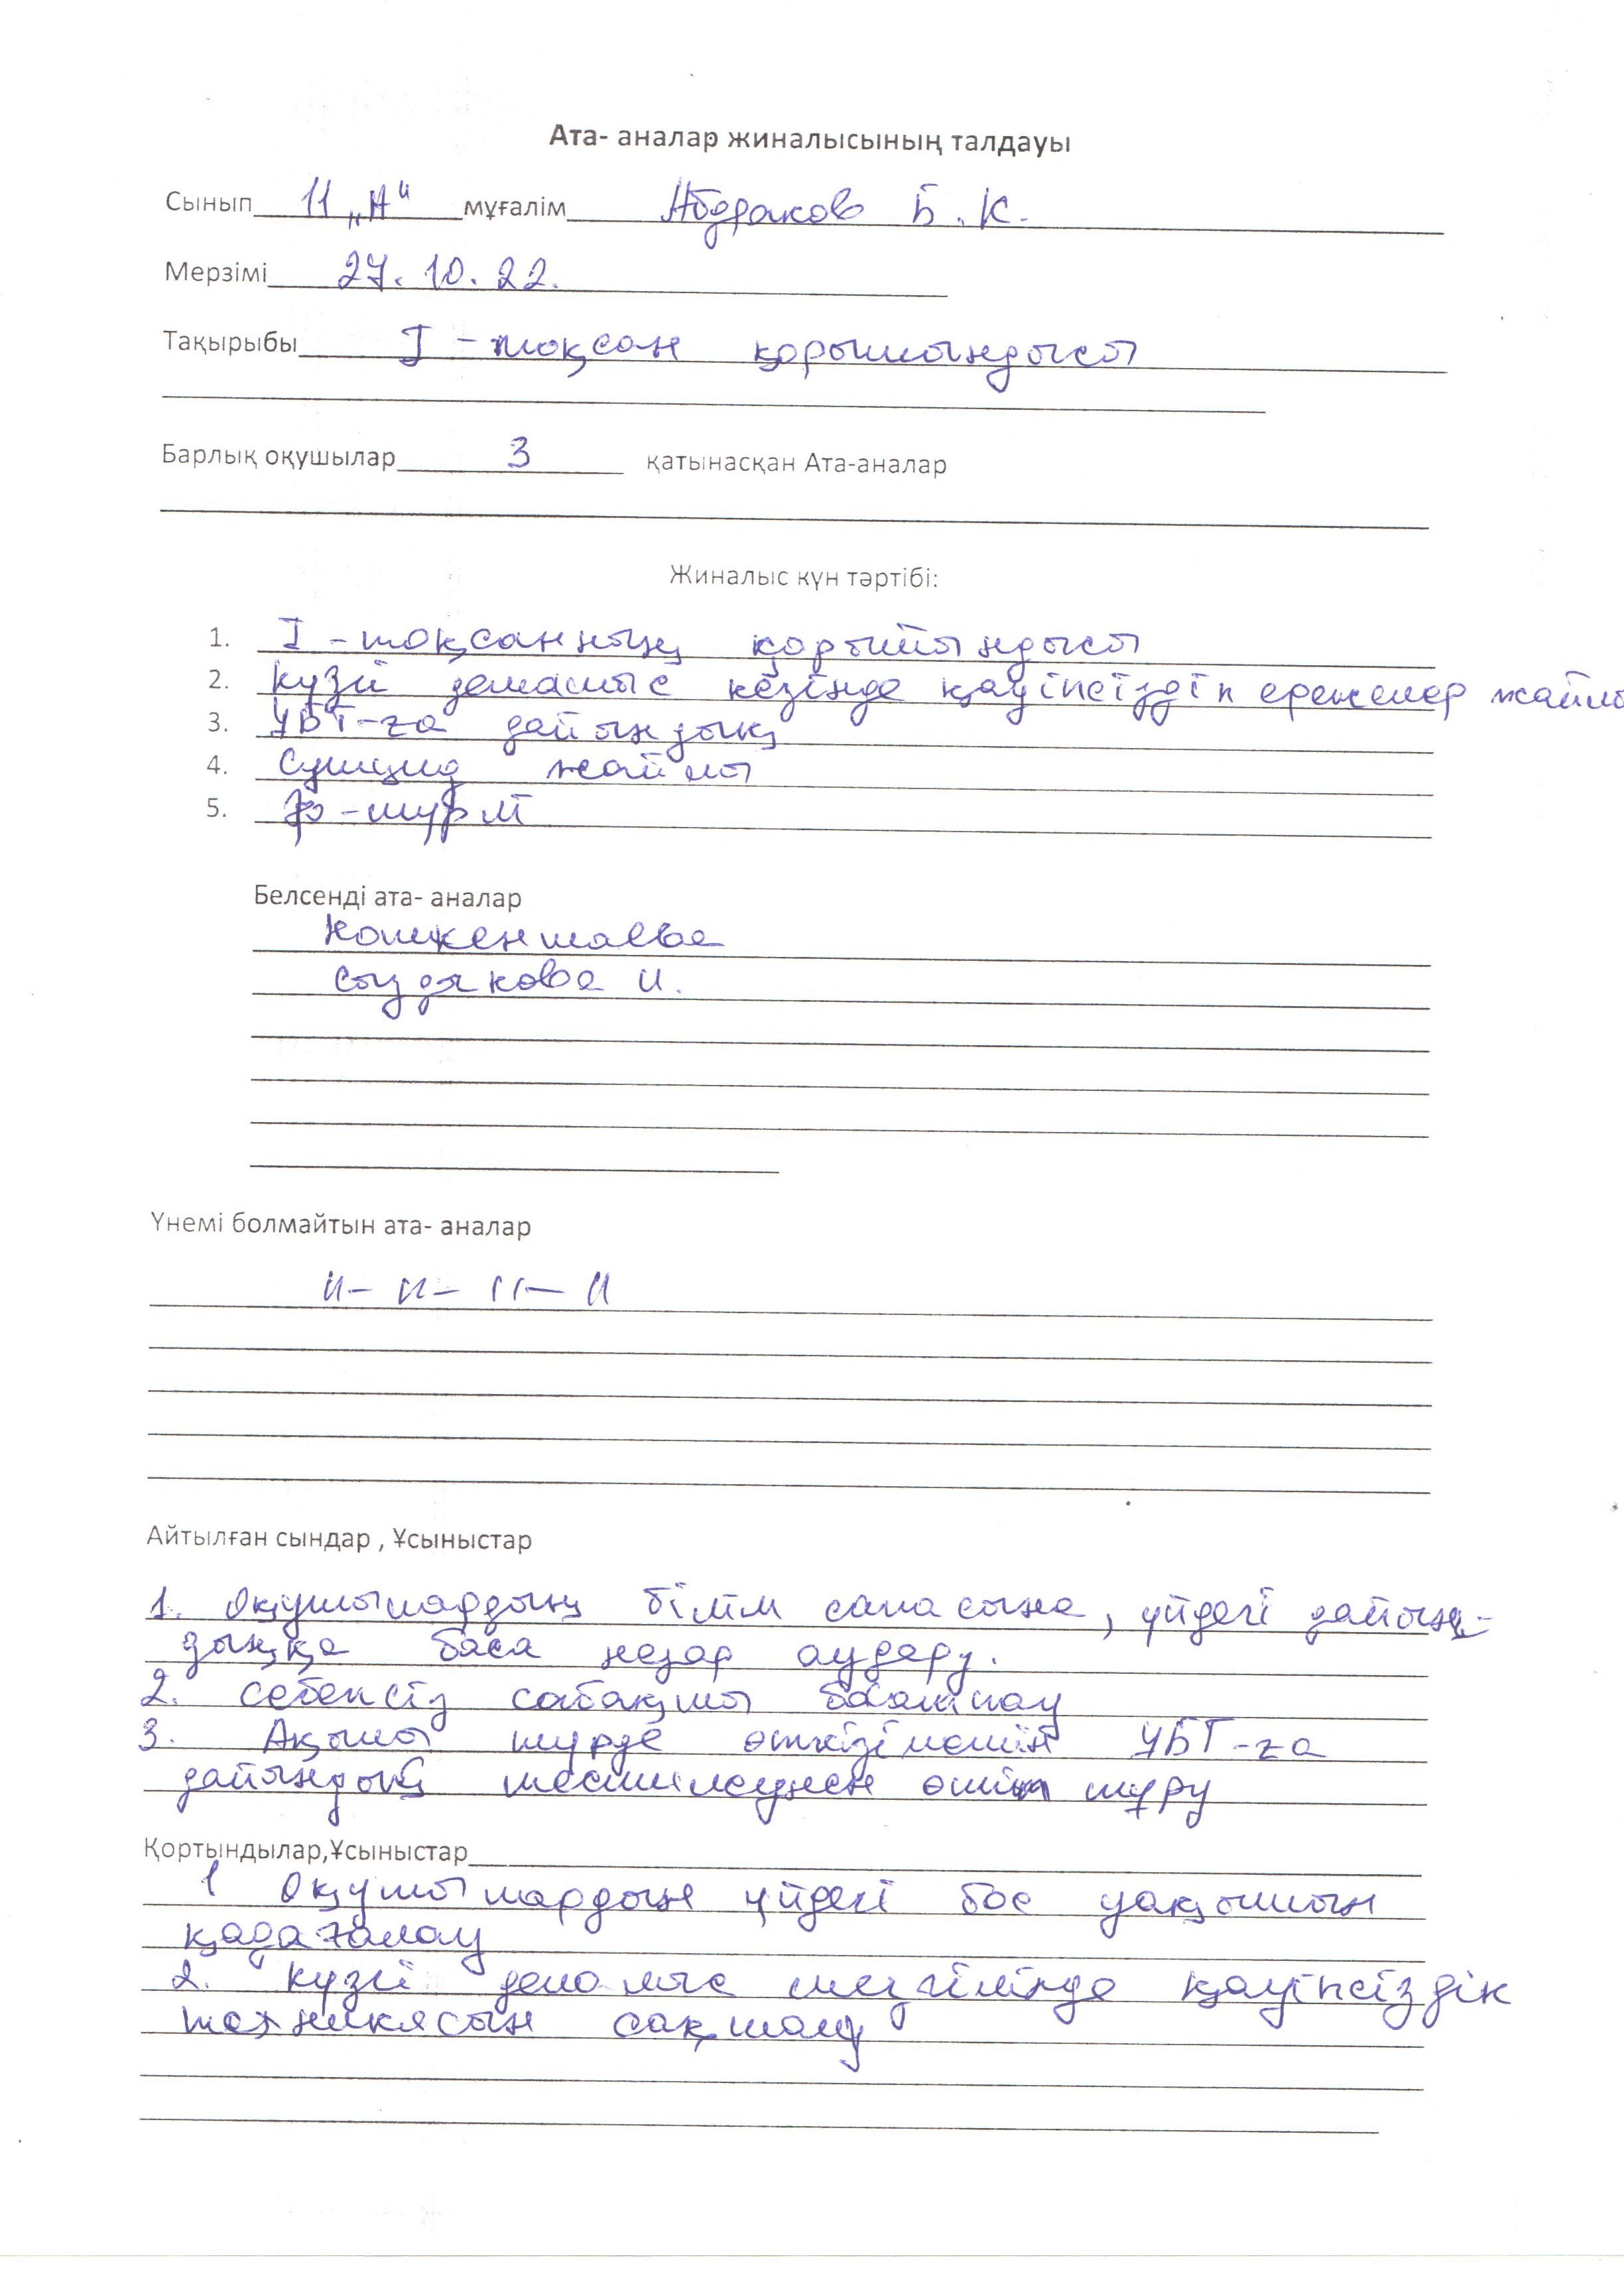 Ата- аналар жиналысының талдауы
Сынып 11 „А" мұғалім Абдраков Б. К.
Мерзімі 27. 10. 22.
Тақырыбы I - тоқсан қорытындысы
Барлық оқушылар 3 қатынасқан Ата-аналар
Жиналыс күн тәртібі:
1. I - тоқсанның қорытындысы
2. Күзгі демалыс кезінде қауіпсіздік ережелер жайлы
3. ҰБТ-ға дайындық
4. Суицид жайлы
5. Әр-түрлі
Белсенді ата- аналар
Сыздякова И.
Үнемі болмайтын ата- аналар
Айтылған сындар , Ұсыныстар
1. Оқушылардың білім сапасына, үйдегі дайын-
дыққа баса назар аудару.
2. Себепсіз сабақты босатпау
3. Ақылы түрде өткізілетін ҰБТ-ға
дайындық тестілеуінен өтіп тұру
Қортындылар,Ұсыныстар
1 Оқушылардың үйдегі бос уақытын
қадағалау
2. Күзгі демалыс мезгілінде қауіпсіздік
техникасын сақтау